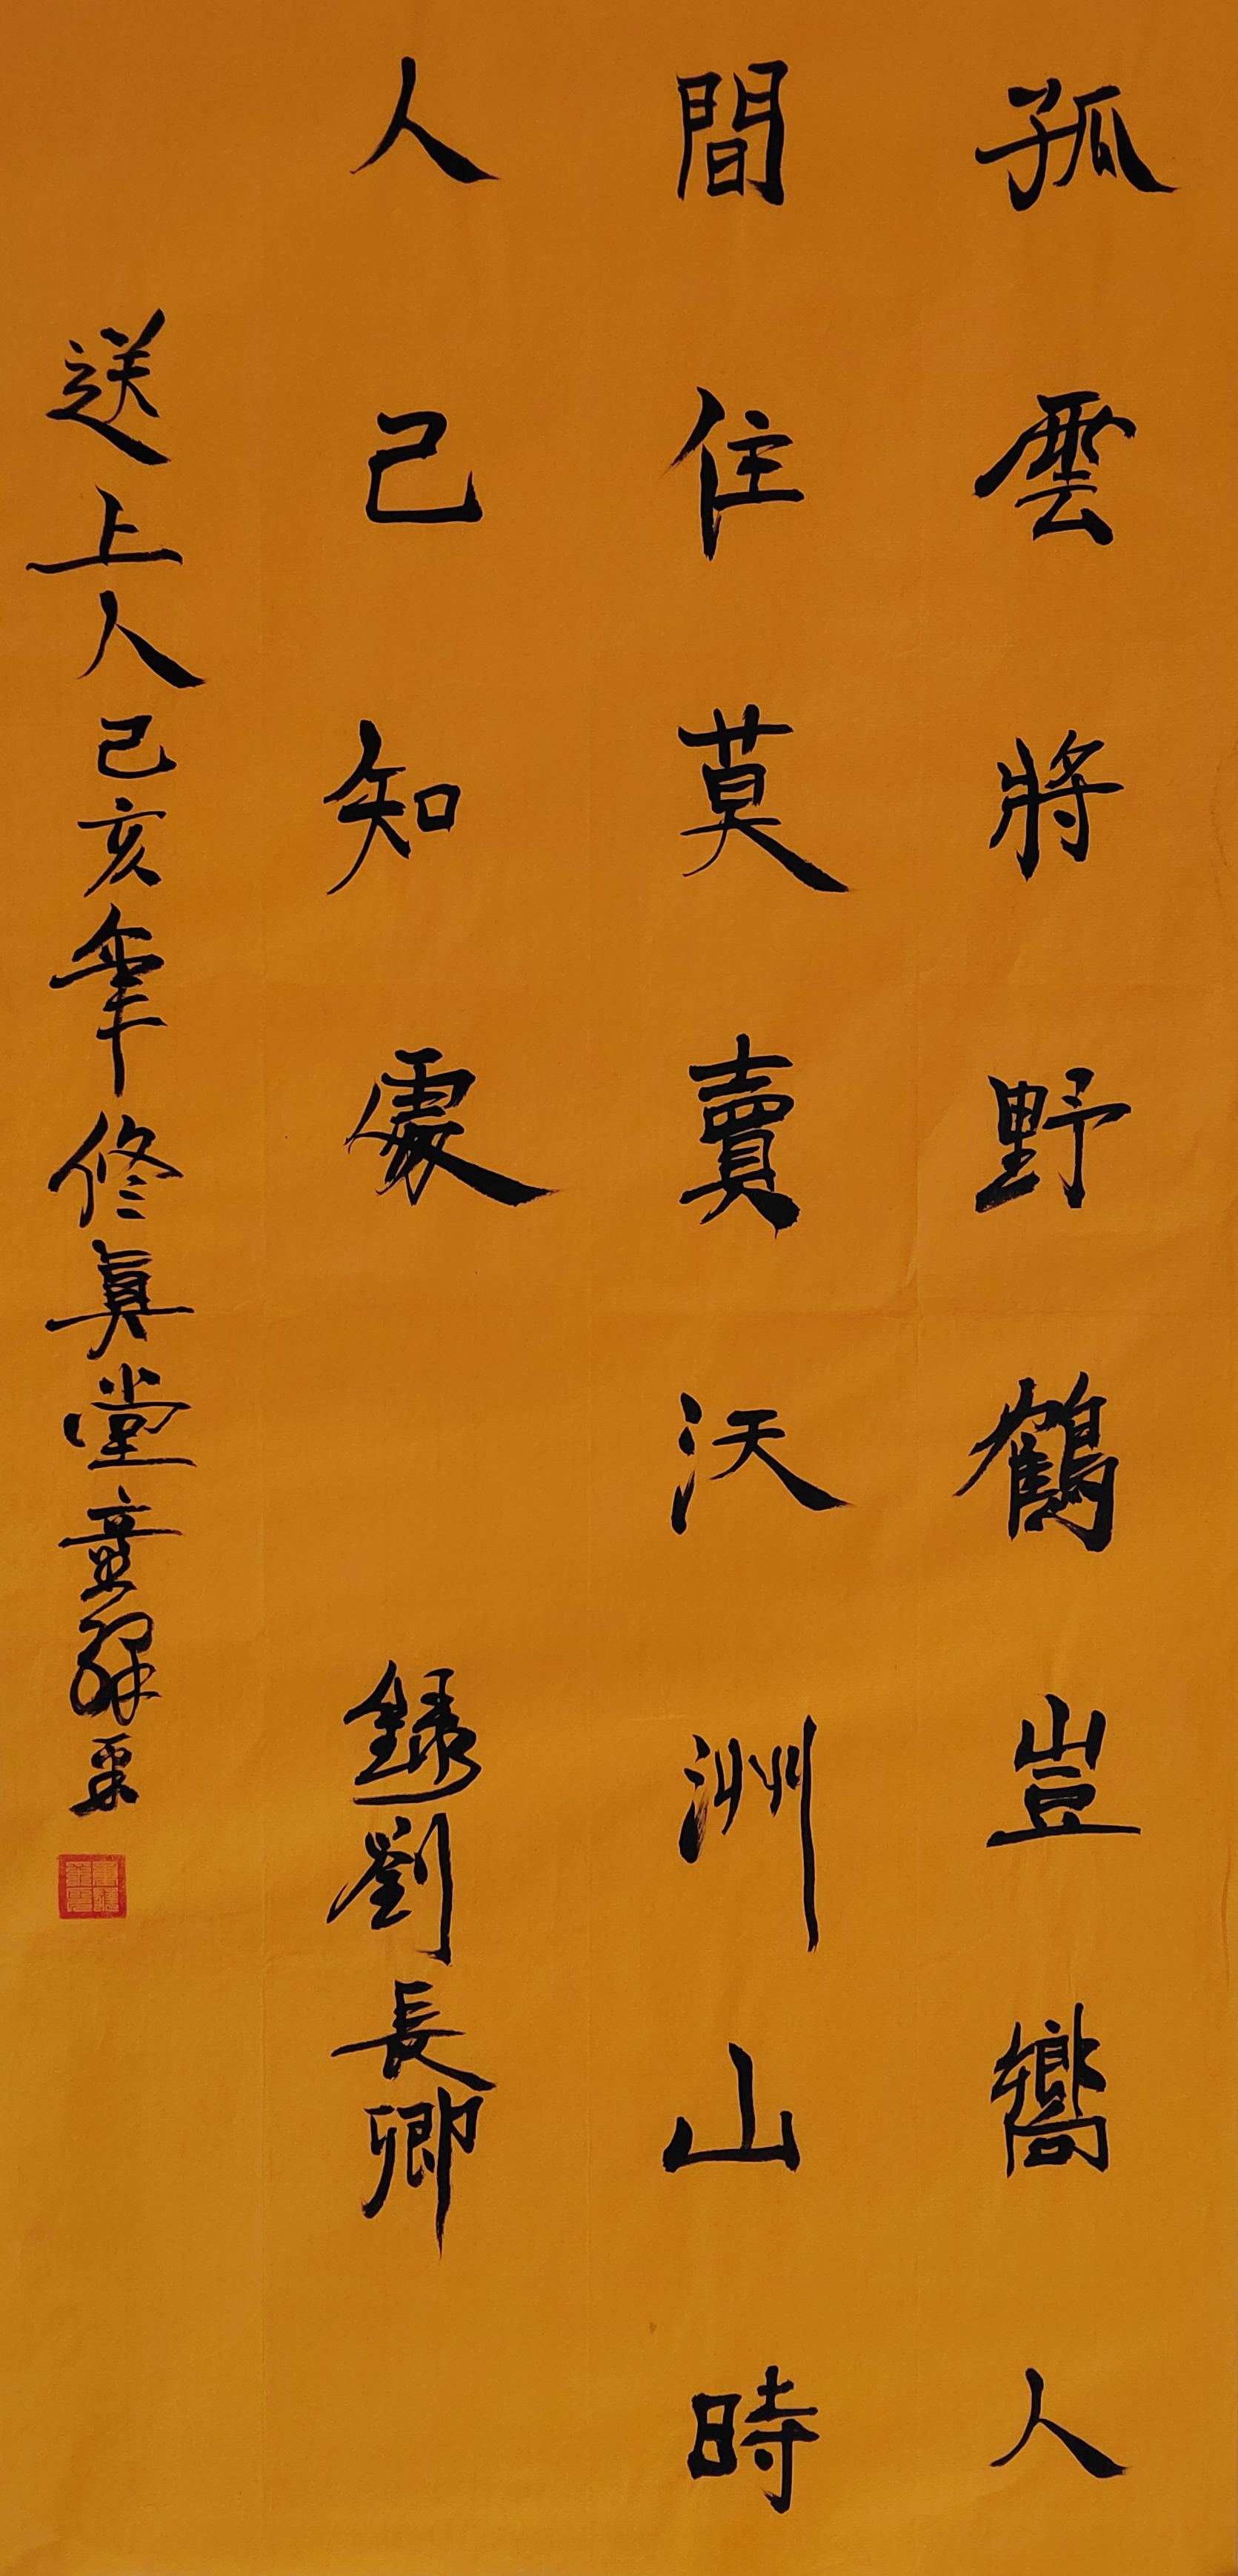 孤雲將野鶴豈嚮人
間住莫賣沃洲山時
人己知處 錄劉長卿
送上人己亥年修真堂童